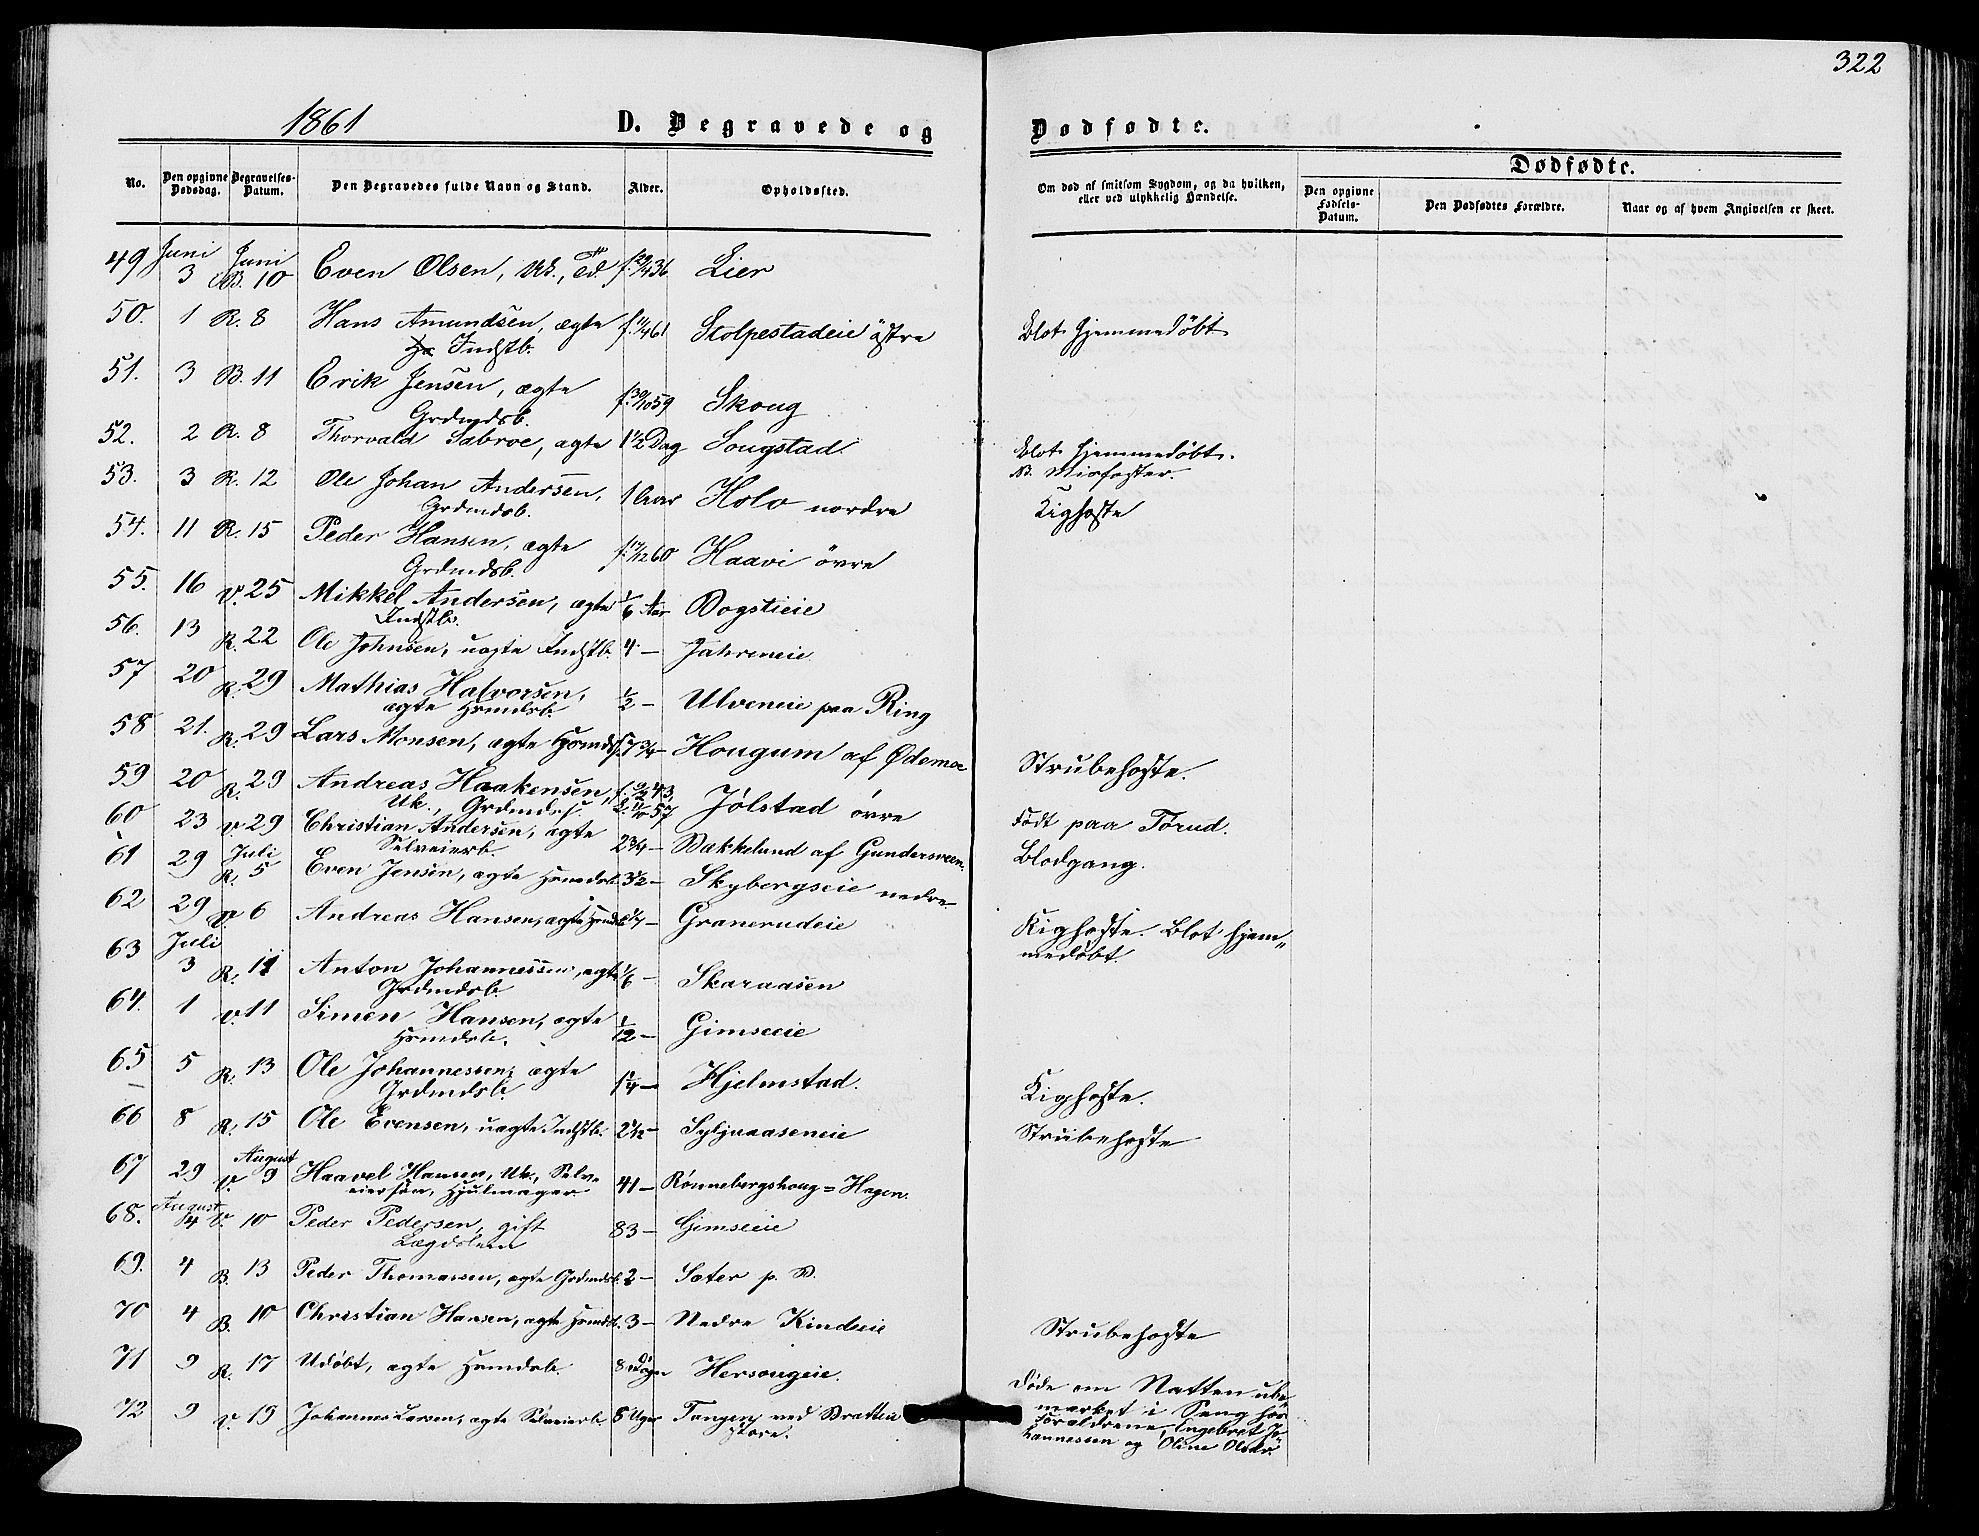 322
1861
D. Begravede og
Dødfødte.
No.
Den opgivne Dødsdag.
Begravelses-Datum.
Den Begravedes fulde Navn og Stand.
Alder.
Opholdssted.
Om død af smitsom Sygdom, og da hvilken, eller ved ulykkelig Hændelse.
Dødfødte.
Den opgivne Fødsels-Datum.
Den Dødfødtes Forældre.
Naar og af hvem Angivelsen er skeet.
49 Juni 3 Juni B. 10 Even Olsen, Uk., 36 Lier
50. 1 R. 8 Hans Amundsen, ægte Indstb. 61 Stolpestadeie østre Blot hjemmedøbt
51. 3 B. 11 Erik Jensen, ægte Grdmdsb. f. 30/10 59 Skoug
52. 2 R. 8 Thorvald Sabroe, ægte 1 1/2 Dag Sougstad Blot hjemmedøbt.
53. 3 R. 12 Ole Johan Andersen, Grdmdsb. 1 Aar Holo nordre Kighoste
54. 11 R. 15 Peder Hansen, ægte Grdmdsb. 60 Haavi övre
55. 16 V. 25 Mikkel Andersen, ægte Indstb. 1/6 Aar Dogstieie
56. 13 R. 22 Ole Johnsen, uægte Indstb. 4 – Jahreneie
57 20 R. 29 Mathias Halvorsen, ægte Hsmdsb. 1/2 – Ulveneie paa Ring
58 21. R. 29 Lars Monsen, ægte 7 3/4 – Hougum af Strubehoste.
59 20 R. 29 Andreas Haakensen, Uk., 43, 57 Jølstad övre Født paa Tørud.
60 23 V. 29 Christian Andersen, ægte Selveierb. 2 3/4 – Bakkelund af Gundersveen Blodgang.
61 29 Juli R. 5 Even Jensen, ægte Hsmdsb. 3 1/2 – Skybergseie nedre
62 29 V. 6 Andreas Hansen, ægte Hsmdsb. 1/4 – Granerudeie Kighoste. Blot hjem„
medøbt.
63 Juli 3 R. 11 Anton Johannessen, ægte Grdmdsb. 1/6 – Skaraasen
64. 1 V. 11 Simen Hansen, ægte Hsmdsb. 1/12 – Gimseeie
65 5 R. 13 Ole Johannessen, ægte Grdmdsb. 1 1/4 – Hjelmstad. Kighoste.
66 8 R. 15 Ole Evensen, uægte Indstb. 2 1/2 – Syljuaaseneie Strubehoste
67 29 August V. 9 Haavel Hansen, Uk., Selv=
eiersön, Hjulmager 41 – Rønnebergshoug=Hagen.
68. August 4 V. 10 Peder Pedersen, gift 83 – Gimseeie
Lægdslem
69. 4 B. 13 Peder Thomassen, ægte Grdmdsb. 2 – Sæter p. B.
70 4 B. 10 Christian Hansen, ægte Hsmdsb. 3 – Nedre Kindseie Strubehoste
71 9 R. 17 Udøbt, ægte Hsmdsb. 8 Hersougeie.
72 9 V. 19 Johannes Larsen, ægte Selveierb. 5 Uger Tangen ved Bratten
store.
Døde om Natten ube=
mærket i Seng hos
Forældrene, Ingebret Jo=
hannessen og Oline Olsdr.